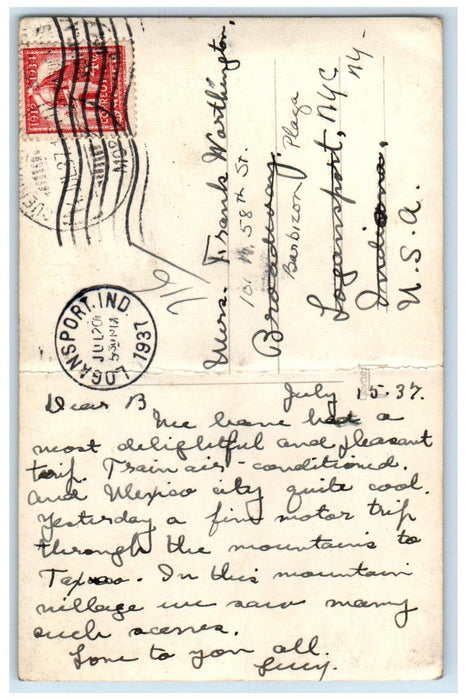 Mrs. Frank Worthington.
101 W. 58th St.
Broadway.
Barbizon Plaza
Logansport, NYC
Indiana, NY-
U.S.A.
1916 1934
CORREO
LOGANSPORT. IND.
JUL 20
5 30 PM
1937
July 15-37.
Dear B
We have had a
most delightful and pleasant
trip. Train air-conditioned.
and Mexico city quite cool.
Yesterday a fine motor trip
through the mountains to
Taxco. In this mountain
village we saw many
such scenes.
Love to you all.
Lucy.